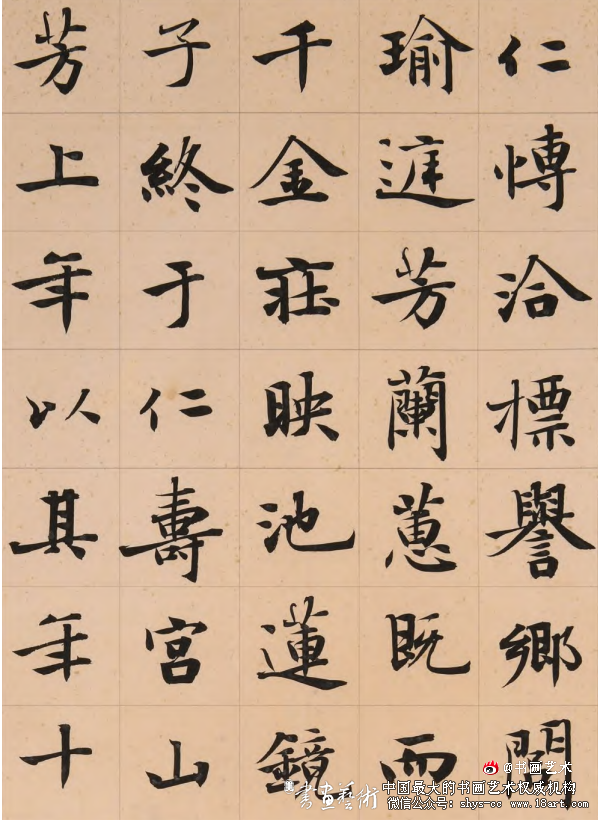 仁愽洽標譽鄉閭
瑜芳蘭蕙既而
千金莊映池蓮鏡
子終于仁壽宮山
芳上年以其年十
@书画艺术
書畫藝術
中国最大的书画艺术权威机构
微信公众号: shys-cc www.18art.com